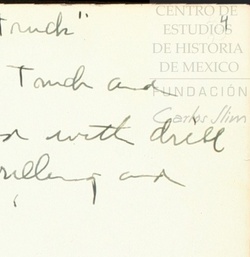 Truck"
4
CENTRO DE
ESTUDIOS
DE HISTORIA
DE MEXICO
FUNDACIÓN
Carlos Slim
Truck and
with drill
and